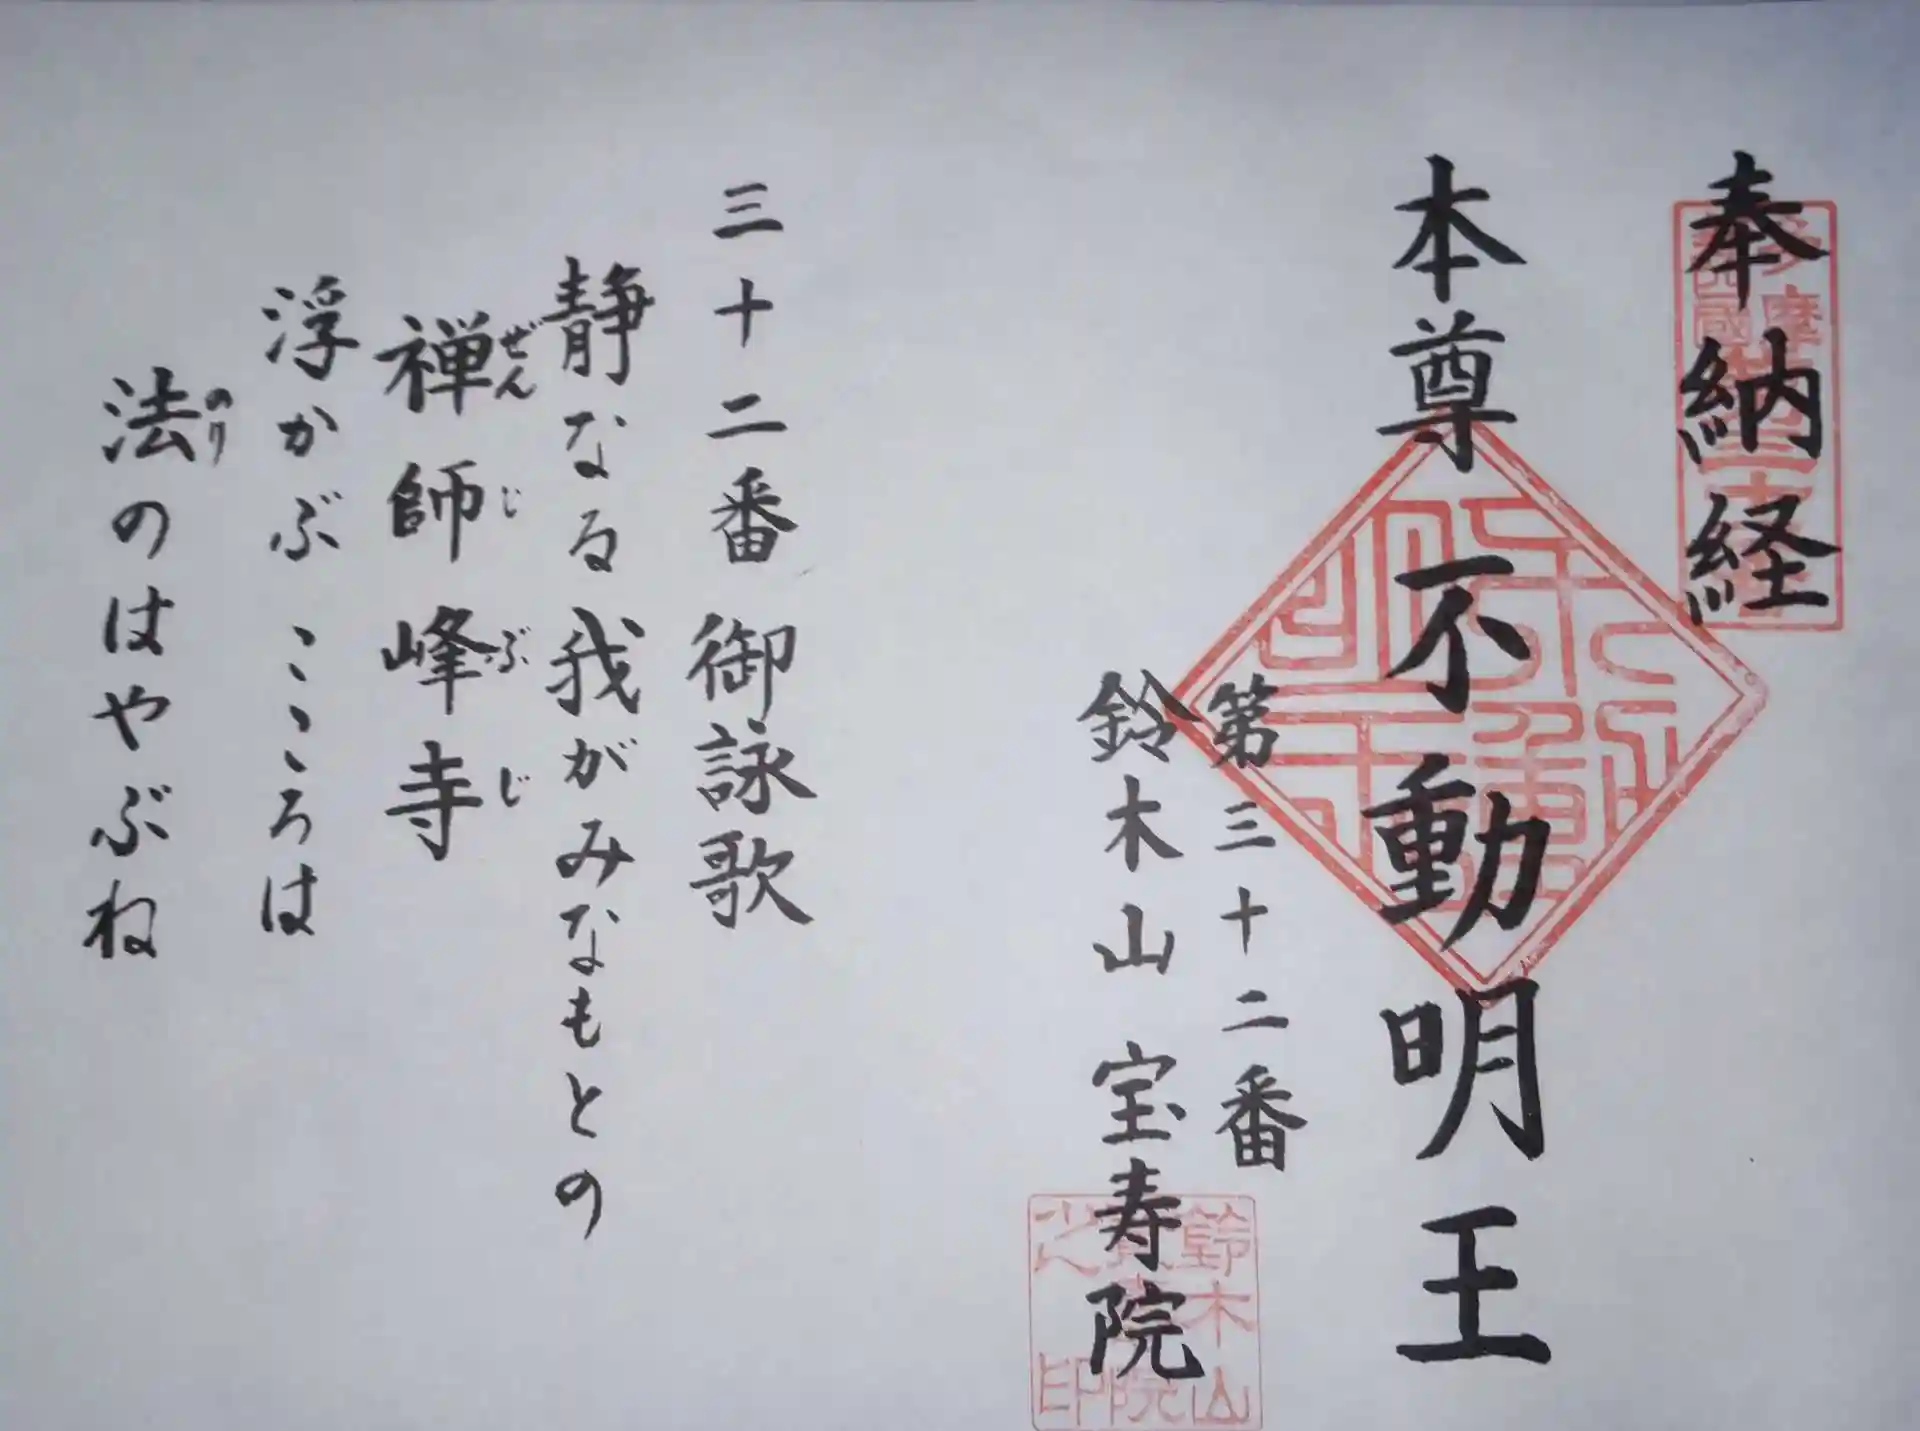 奉納経
本尊不動明王
第三十二番
鈴木山 宝寿院
三十二番 御詠歌
静なる我がみなもとの
禅師峰寺
ぜんじぶじ
浮かぶこころは
法のはやぶね
のり
鈴木山
院
之印